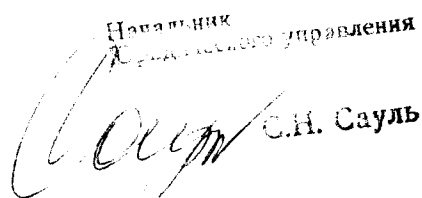 Начальник
Юридического управления
С.Н. Сауль